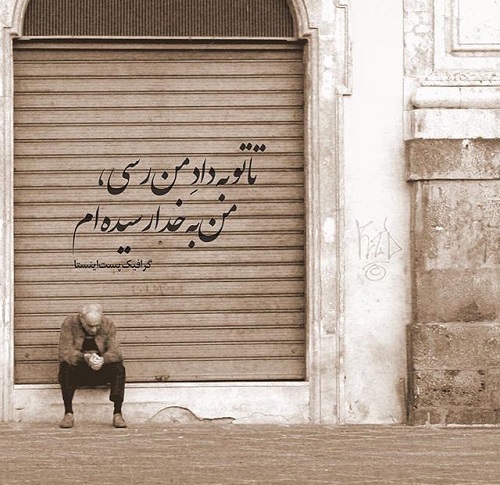 تا تو به دادِ من رسی،
من به خدا رسیده ام
گرافیک پست اینستا